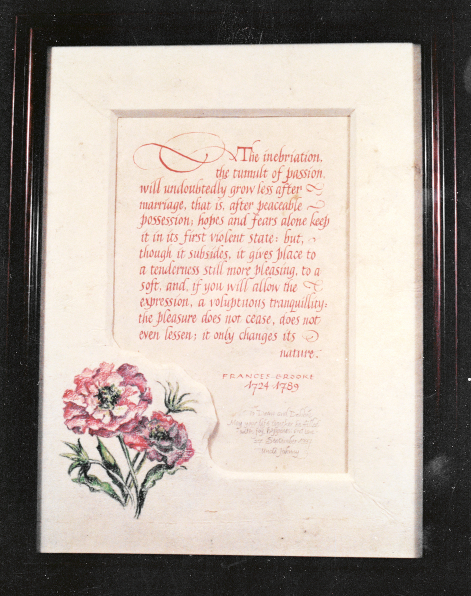 The inebriation,
the tumult of passion,
will undoubtedly grow less after
marriage, that is, after peaceable
possession; hopes and fears alone keep
it in its first violent state: but,
though it subsides, it gives place to
a tenderness still more pleasing, to a
soft, and, if you will allow the
expression, a voluptuous tranquillity:
the pleasure does not cease, does not
even lessen; it only changes its
nature.
FRANCES BROOKE
1724-1789
and
May your life together be filled
with joy, happiness and